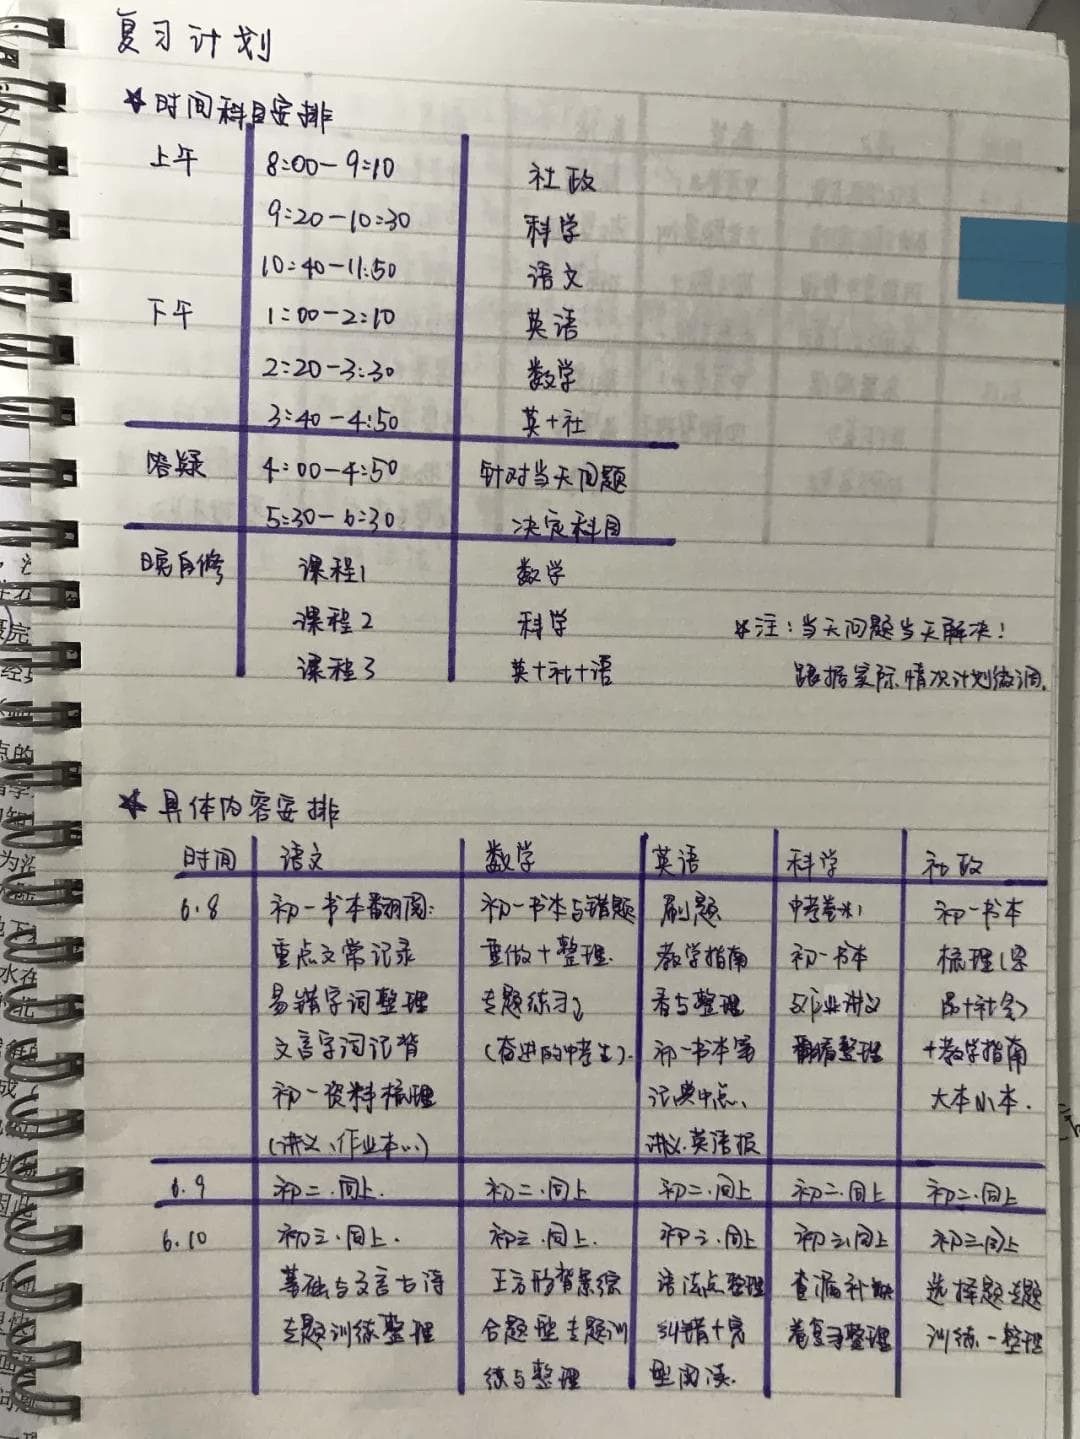 复习计划
★时间科目安排
上午 8:00-9:10 社政
9:20-10:30 科学
10:40-11:50 语文
下午 1:00-2:10 英语
2:20-3:30 数学
3:40-4:50 英+社
答疑 4:00-4:50 针对当天问题
5:30-6:30 决定科目
晚自修 课程1 数学
课程2 科学
课程3 英+社+语
*注:当天问题当天解决!
跟据实际情况计划微调.
★具体内容安排
时间 语文 数学 英语 科学 社政
6.8 初一书本翻阅: 初一书本与错题 刷题 中考卷×1 初一书本
重点文常记录 重做+整理. 教学指南 初一书本 梳理(
易错字词整理 专题练习 看与整理 与作业讲义 +社会)
文言字词记背 (奋进的中考生). 初一书本 翻看整理 +教学指南
初一资料梳理 大本小本.
(讲义、作业本…) 讲义.英语报
6.9 初二.同上. 初二.同上 初二.同上 初二.同上 初二.同上
6.10 初三.同上. 初三.同上. 初三.同上 初三同上 初三同上
基础与文言古诗 正方形背景综 语法点整理 查漏补缺 选择题专题
专题训练整理 合题型专题训 纠错+完 着复习整理 训练-整理
练与整理 型阅读.